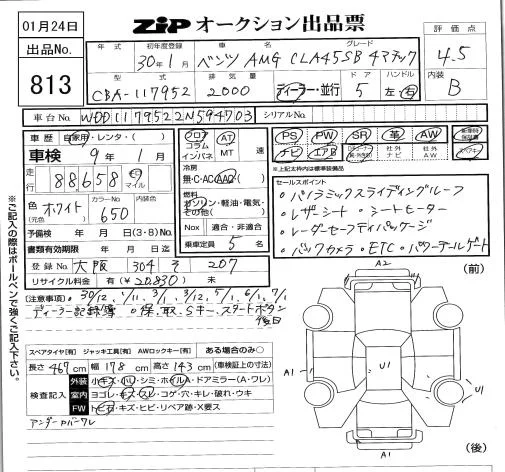 01月24日
出品No.
813
ZIP オークション出品票
評価点
4.5
内装
B
年式 初年度登録 車名 グレード
30年1月 ベンツ AMG CLA45SB 4マチック
型式 排気量 ディーラー・並行 ドア ハンドル
CBA-117952 2000 5 左・右
車台No. WDD1179522N594703 シリアルNo.
車歴 自家用・レンタ・( )
車検 9年1月
走行 88,658 km マイル
色(元色) ホワイト カラーNo. 650 内装色
予備検 年 月 日(3・8)No.
書類有効期限 年 月 日迄
登録No. 大阪 304 そ 207
リサイクル料金 有(¥20,830) 無
フロア コラム インパネ AT MT 速
冷房 無・C・AC・AAC・( )
燃料 ガソリン・軽油・電気・その他( )
Nox 適合・非適合
乗車定員 5 名
PS PW SR 革 AW 新車時保証書
ナビ エアB 社外ナビ 社外AW スペアキー
※上記太枠内は標準装備品
セールスポイント
・パノラミックスライディングルーフ
・レザーシート ・シートヒーター
・レーダーセーフティパッケージ
・バックカメラ・ETC・パワーテールゲート
(注意事項)・30/12, 1/11, 3/1, 3/12, 5/1, 6/1, 7/1
ディーラー記録簿 ○保、取、Sキー、スタートボタン
後日
スペアタイヤ[有] ジャッキ工具[有] AWロックキー[有] ある場合のみ○
長さ 467 cm 幅 178 cm 高さ 143 cm (車検証上の寸法)
検査記入
外装 小キズ・凹・シミ・ホイルA・ドアミラー(A・ワレ)
室内 ヨゴレ・キズ・スレ・コゲ・穴・キレ・破れ・ウキ
FW トビ石・キズ・ヒビ・リペア跡・X要ス
アンダーカバーワレ
※ご記入の際はボールペンで強くご記入下さい。
(前)
A2
U1
A1
U1
A1
(後)